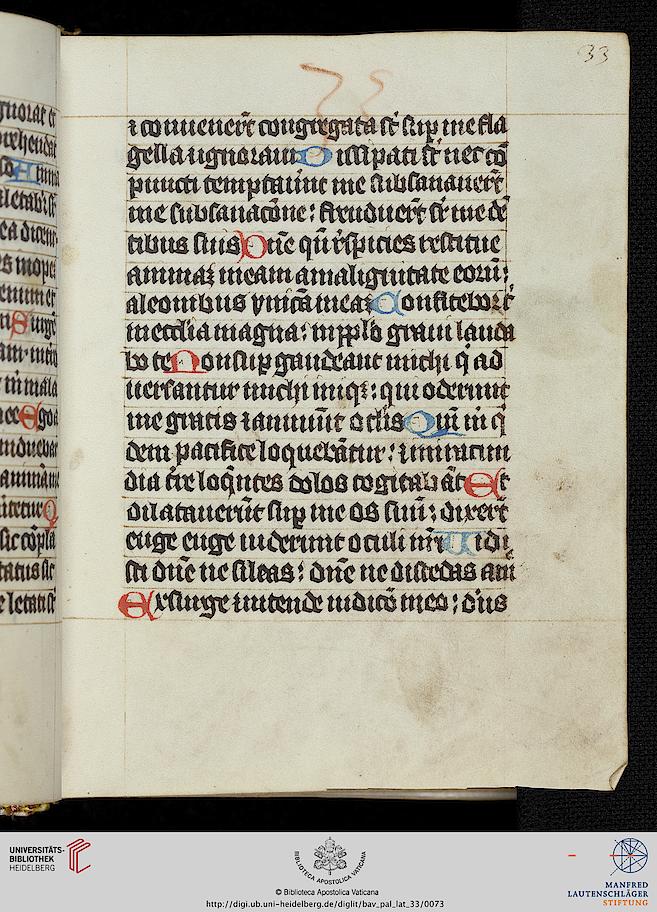 33
⁊ co nuenert̄ congregata st̄ sup̱ me fla
gella ⁊ ignoraui Dissipati st̄ nec cō
puncti temptauūt me subsanauert̄
me subsanacōne : frenduert̄ sr̄ me dē
tibus suis Dn̄e qn̄ rspicies restitue
animaꝫ meam a malignitate eorū :
a leonibus vnicā meaꝫ Confitebor t̄
in ecclīa magna : in pplō graui lauda
bo te Non sup̱ gaudeant michi q̇ ad
uersantur michi iniq̱ : qui oderunt
me gratis ⁊ annuūt oclīs Qm̄ m̄ q̇
dem pacifice loquebātur : ⁊ in iracun
dia tr̄e loqn̄tes dolos cogitabāt Et
dilatauerūt sup̱ me os suū : dixert̄
euge euge uiderunt oculi nr̄i Uidi
sti dn̄e ne sileas : dn̄e ne discedas a m̄
Exsurge ⁊ intende iudicō meo : d's
UNIVERSITÄTS-
BIBLIOTHEK
HEIDELBERG
BIBLIOTECA APOSTOLICA VATICANA
© Biblioteca Apostolica Vaticana
http://digi.ub.uni-heidelberg.de/diglit/bav_pal_lat_33/0073
MANFRED
LAUTENSCHLÄGER
STIFTUNG